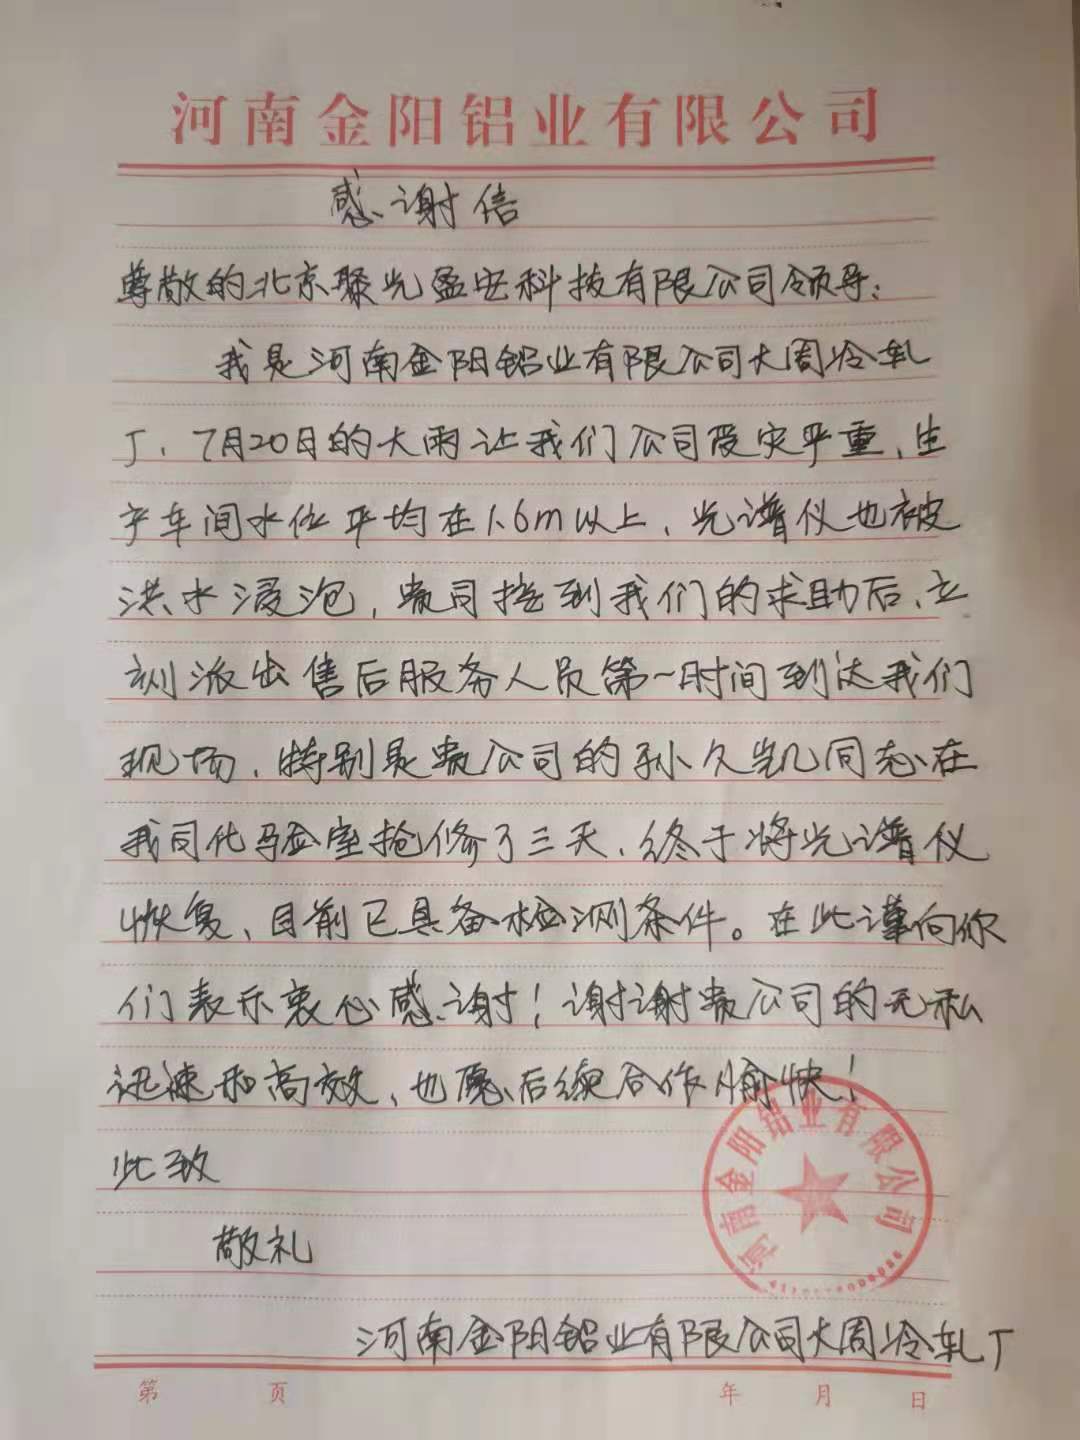 河南金阳铝业有限公司
感谢信
尊敬的北京聚光盈安科技有限公司领导:
我是河南金阳铝业有限公司大周冷轧
厂，7月20日的大雨让我们公司受灾严重、生
产车间水位平均在1.6m以上、光谱仪也被
洪水浸泡，贵司接到我们的求助后、立
刻派出售后服务人员第一时间到达我们
现场、特别是贵公司的孙久凯同志在
我司化验室抢修了三天、终于将光谱仪
恢复、目前已具备检测条件。在此谨向你
们表示衷心感谢！谢谢贵公司的无私
迅速和高效、也愿后续合作愉快！
此致
敬礼
河南金阳铝业有限公司
河南金阳铝业有限公司大周冷轧厂
第 页 年 月 日